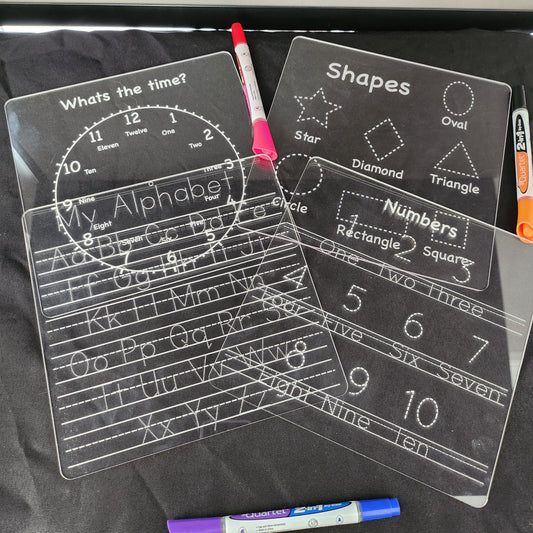 Whats the time?
12
Twelve
1
One
2
Two
3
Three
4
Four
5
Five
6
Six
7
Seven
8
Eight
9
Nine
10
Ten
11
Eleven
Shapes
Star
Oval
Diamond
Triangle
Circle
Rectangle
Square
My Alphabet
Aa Bb Cc Dd Ee
Ff Gg Hh Ii Jj
Kk Ll Mm Nn
Oo Pp Qq Rr Ss
Tt Uu Vv Ww
Xx Yy Zz
Numbers
1 2 3
One Two Three
4 5 6 7
Four Five Six Seven
8 9 10
Eight Nine Ten
Quartet 2in1
Quartet 2in1